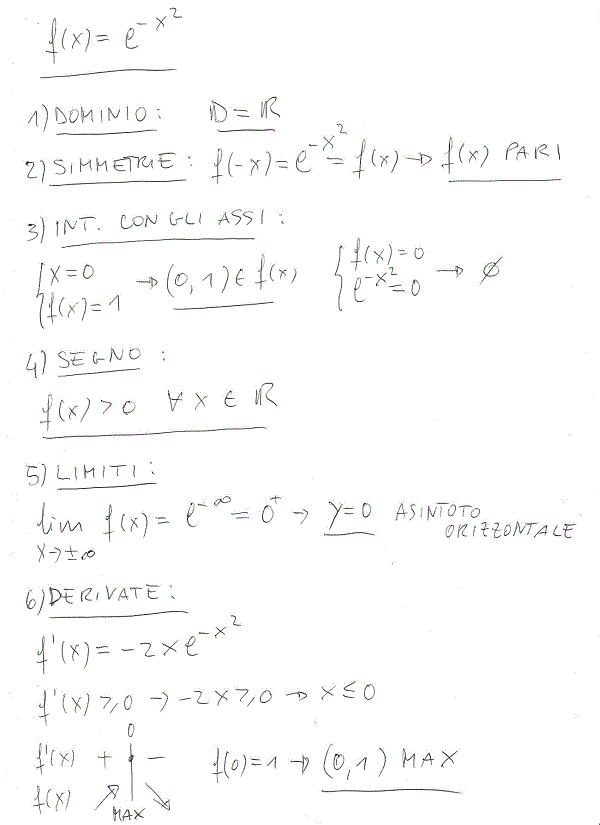 f(x) = e^{-x^2}
1) DOMINIO: D = ℝ
2) SIMMETRIE: f(-x) = e^{-x^2} = f(x) → f(x) PARI
3) INT. CON GLI ASSI:
{ x=0 f(x)=1 → (0,1) ∈ f(x) { f(x)=0 e^{-x^2}=0 → ∅
4) SEGNO:
f(x) > 0 ∀ x ∈ ℝ
5) LIMITI:
lim x→±∞ f(x) = e^{-∞} = 0^+ → y=0 ASINTOTO ORIZZONTALE
6) DERIVATE:
f'(x) = -2xe^{-x^2}
f'(x) ≥ 0 → -2x ≥ 0 → x ≤ 0
0
f'(x) + - f(0)=1 → (0,1) MAX
f(x) ↗ ↘
MAX